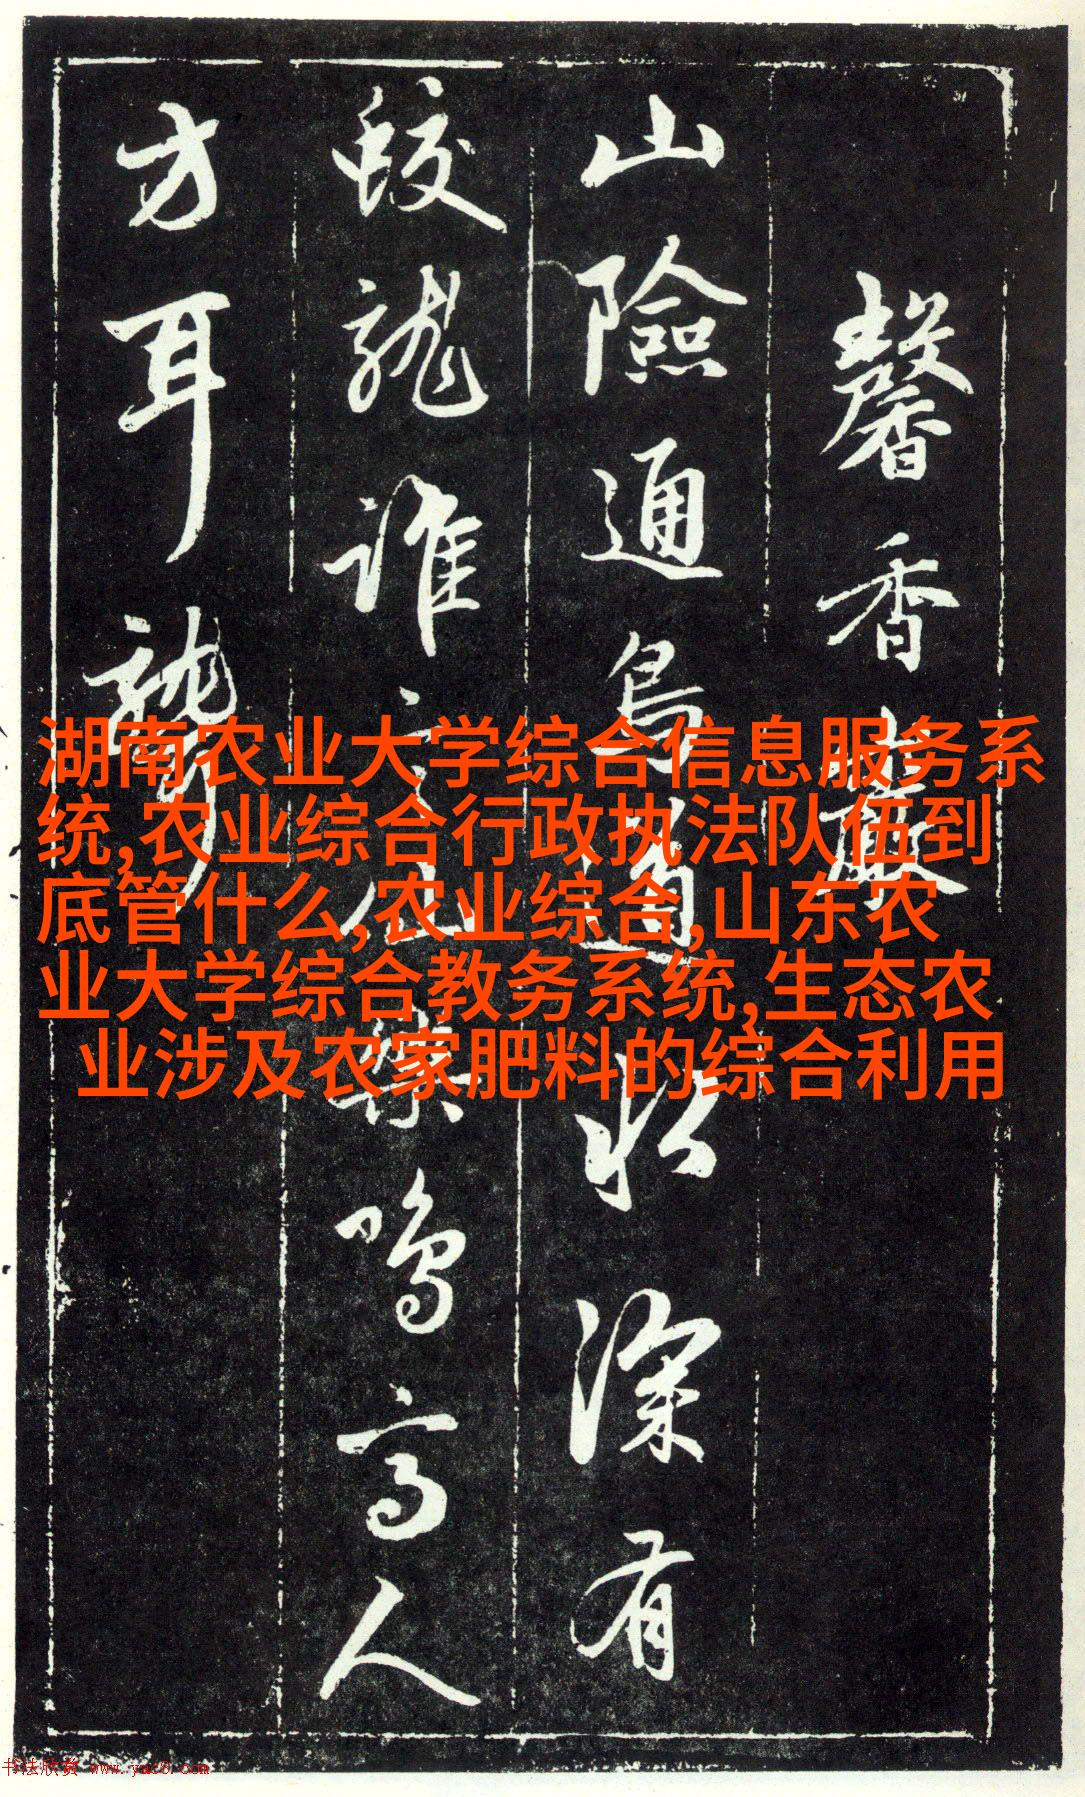 馨香巖
山險通鳥道水深有
蛟龍誰鳴高人
方耳聾
湖南农业大学综合信息服务系
统,农业综合行政执法队伍到
底管什么,农业综合,山东农
业大学综合教务系统,生态农
业涉及农家肥料的综合利用
书法欣赏 www.yac8.com